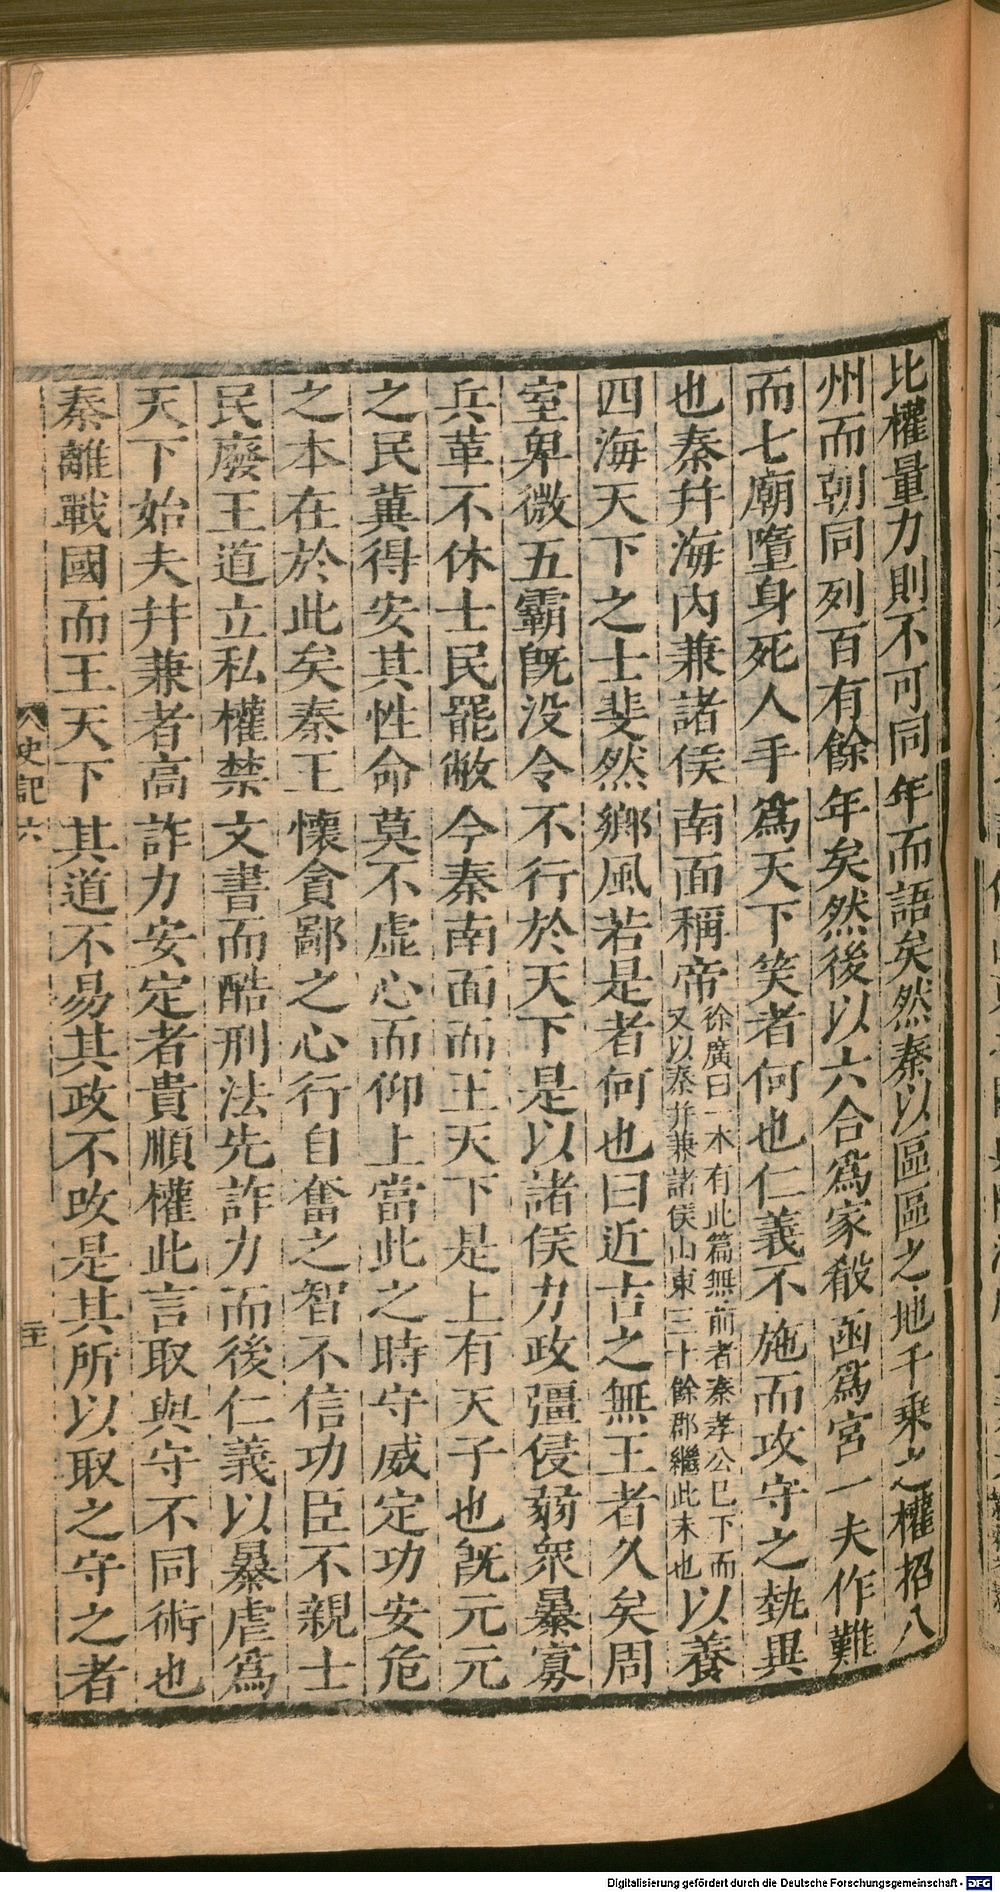 比權量力則不可同年而語矣然秦以區區之地千乗之權招八
州而朝同列百有餘年矣然後以六合爲家殽函爲宮一夫作難
而七廟墮身死人手爲天下笑者何也仁義不施而攻守之埶異
也秦并海内兼諸侯南面稱帝徐廣曰一本有此篇無前者秦孝公已下而又以秦并兼諸侯山東三十餘郡繼此末也以養
四海天下之士斐然鄉風若是者何也曰近古之無王者久矣周
室卑微五霸旣没令不行於天下是以諸侯力政彊侵弱衆暴寡
兵革不休士民罷敝今秦南面而王天下是上有天子也旣元元
之民冀得安其性命莫不虚心而仰上當此之時守威定功安危
之本在於此矣秦王懷貪鄙之心行自奮之智不信功臣不親士
民廢王道立私權禁文書而酷刑法先詐力而後仁義以暴虐爲
天下始夫并兼者高詐力安定者貴順權此言取與守不同術也
秦離戰國而王天下其道不易其政不改是其所以取之守之者
史記六
二十
Digitalisierung gefördert durch die Deutsche Forschungsgemeinschaft - DFG